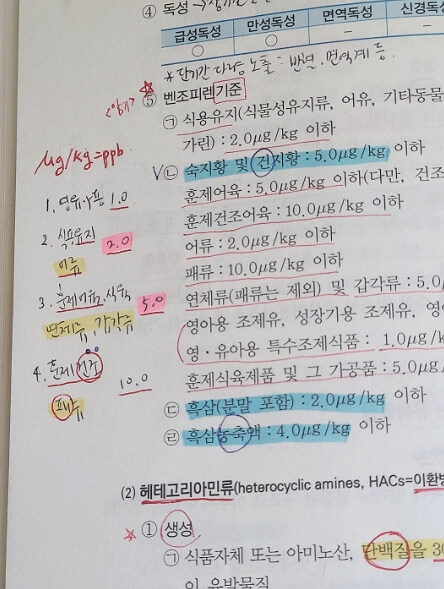 ④ 독성
급성독성 만성독성 면역독성 신경독성
○ ○ － －
* 단기간 다량 노출 : 발열, 면역계 등.
⑤ 벤조피렌 기준
<암기>
㉠ 식용유지(식물성유지류, 어유, 기타동물
가린) : 2.0μg/kg 이하
μg/kg=ppb
V㉡ 숙지황 및 건지황 : 5.0μg/kg 이하
훈제어육 : 5.0μg/kg 이하(다만, 건조
1. 영유아용 1.0
훈제건조어육 : 10.0μg/kg 이하
2. 식용유지 2.0
어류
어류 : 2.0μg/kg 이하
패류 : 10.0μg/kg 이하
3. 훈제어육, 식육 5.0
연체류, 갑각류
연체류(패류는 제외) 및 갑각류 : 5.0
영아용 조제유, 성장기용 조제유, 영
영·유아용 특수조제식품 : 1.0μg/k
4. 훈제건조 10.0
패류
훈제식육제품 및 그 가공품 : 5.0μg/
㉢ 흑삼(분말 포함) : 2.0μg/kg 이하
㉣ 흑삼농축액 : 4.0μg/kg 이하
(2) 헤테고리아민류(heterocyclic amines, HACs=이환방
* ① 생성
㉠ 식품자체 또는 아미노산, 단백질을 30
이 유발물질